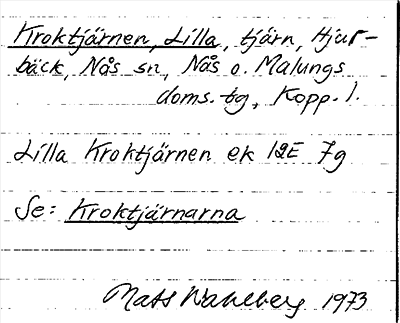 Kroktjärnen, Lilla, tjärn, Hjul-
bäck, Nås sn, Nås o. Malungs
doms. tg, Kopp. l.
Lilla Kroktjärnen ek 12E 7g
Se: Kroktjärnarna
Mats Wahlberg 1973